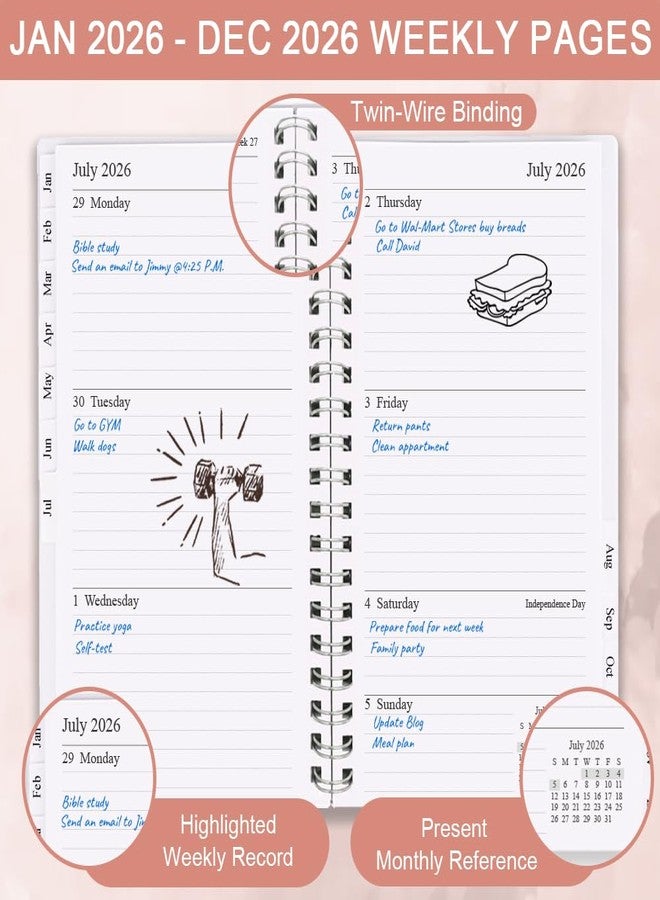 JAN 2026 - DEC 2026 WEEKLY PAGES
Twin-Wire Binding
July 2026
29 Monday
Bible study
Send an email to Jimmy @4:25 P.M.
30 Tuesday
Go to GYM
Walk dogs
1 Wednesday
Practice yoga
Self-test
27
3
Go t
Cal
July 2026
2 Thursday
Go to Wal-Mart Stores buy breads
Call David
3 Friday
Return pants
Clean appartment
4 Saturday
Independence Day
Prepare food for next week
Family party
5 Sunday
Update Blog
Meal plan
Jan
Feb
Mar
Apr
May
Jun
Jul
Aug
Sep
Oct
Jan
Feb
July 2026
29 Monday
Bible study
Send an email to
Highlighted
Weekly Record
July 2026
S M T W T F S
1 2 3 4
5 6 7 8 9 10 11
12 13 14 15 16 17 18
19 20 21 22 23 24 25
26 27 28 29 30 31
Present
Monthly Reference